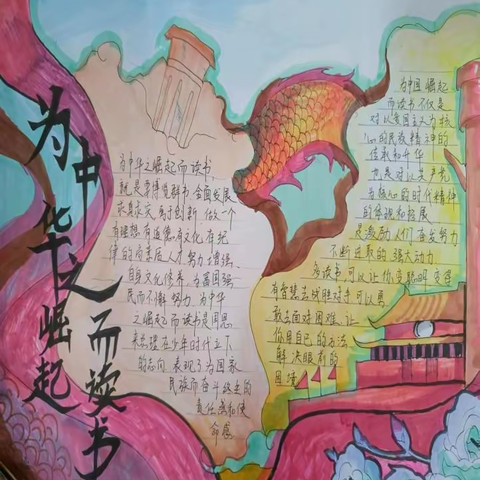 为中华之崛起
而读书
为中华之崛起而读书,
就是要博览群书,全面发展
求真求实,勇于创新,做一个
有理想有道德有文化有纪
律的高素质人才努力增强
自身文化修养,为富国强
民而不懈努力,为中华
之崛起而读书是周恩
来总理在少年时代立下
的志向,表现了为国家
民族而奋斗终生的
责任感和使
命感
为中国崛起
而读书不仅是
对以爱国主义为核
心的民族精神的
传承和升华
也是对以
为核心的时代精神
的体现和拓展
是激励人们奋发努力
不断进取的强大动力
多读书可以让你变聪明变得
有智慧去战胜对手可以勇
敢去面对困难让
你用自己的方法
解决眼前的
困境